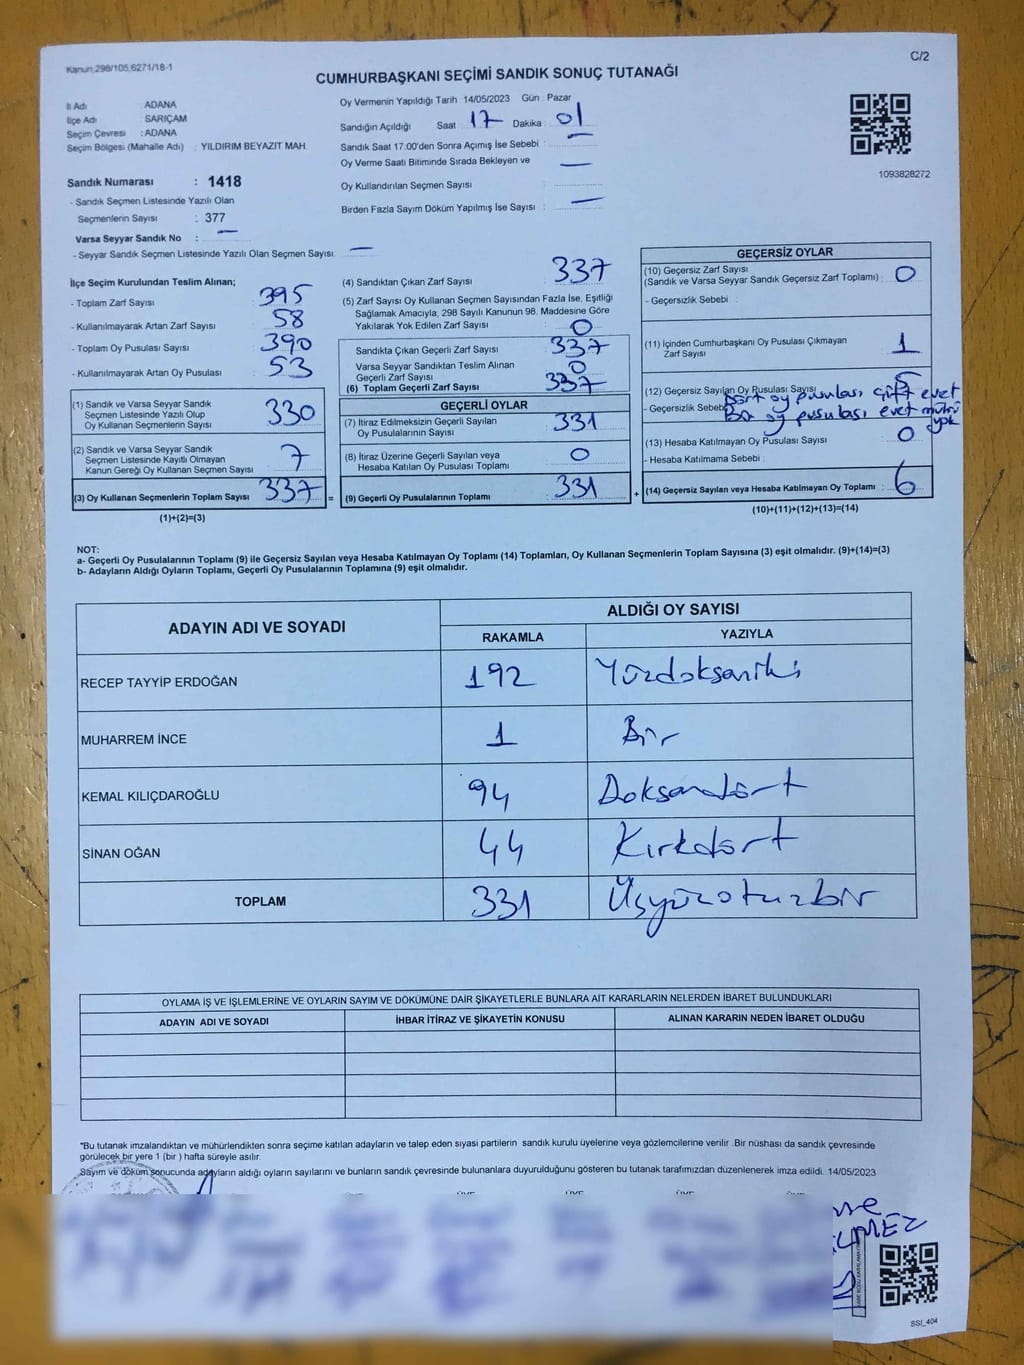 Kanun:298/105,6271/18-1
C/2
CUMHURBAŞKANI SEÇİMİ SANDIK SONUÇ TUTANAĞI
İl Adı : ADANA
İlçe Adı : SARIÇAM
Seçim Çevresi : ADANA
Seçim Bölgesi (Mahalle Adı) : YILDIRIM BEYAZIT MAH.
Oy Vermenin Yapıldığı Tarih : 14/05/2023 Gün : Pazar
Sandığın Açıldığı Saat : 17 Dakika : 01
Sandık Saat 17:00'den Sonra Açımış İse Sebebi : —
Oy Verme Saati Bitiminde Sırada Bekleyen ve —
Oy Kullandırılan Seçmen Sayısı
Birden Fazla Sayım Döküm Yapılmış İse Sayısı : —
1093828272
Sandık Numarası : 1418
- Sandık Seçmen Listesinde Yazılı Olan
Seçmenlerin Sayısı : 377
Varsa Seyyar Sandık No : —
- Seyyar Sandık Seçmen Listesinde Yazılı Olan Seçmen Sayısı: —
İlçe Seçim Kurulundan Teslim Alınan;
- Toplam Zarf Sayısı : 395
- Kullanılmayarak Artan Zarf Sayısı : 58
- Toplam Oy Pusulası Sayısı : 390
- Kullanılmayarak Artan Oy Pusulası : 53
(1) Sandık ve Varsa Seyyar Sandık
Seçmen Listesinde Yazılı Olup
Oy Kullanan Seçmenlerin Sayısı : 330
(2) Sandık ve Varsa Seyyar Sandık
Seçmen Listesinde Kayıtlı Olmayan
Kanun Gereği Oy Kullanan Seçmen Sayısı : 7
(3) Oy Kullanan Seçmenlerin Toplam Sayısı : 337
(1)+(2)=(3)
(4) Sandıktan Çıkan Zarf Sayısı : 337
(5) Zarf Sayısı Oy Kullanan Seçmen Sayısından Fazla İse, Eşitliği
Sağlamak Amacıyla, 298 Sayılı Kanunun 98. Maddesine Göre
Yakılarak Yok Edilen Zarf Sayısı : 0
Sandıkta Çıkan Geçerli Zarf Sayısı : 337
Varsa Seyyar Sandıktan Teslim Alınan
Geçerli Zarf Sayısı : 0
(6) Toplam Geçerli Zarf Sayısı : 337
GEÇERLİ OYLAR
(7) İtiraz Edilmeksizin Geçerli Sayılan
Oy Pusulalarının Sayısı : 331
(8) İtiraz Üzerine Geçerli Sayılan veya
Hesaba Katılan Oy Pusulası Toplamı : 0
= (9) Geçerli Oy Pusulalarının Toplamı : 331
GEÇERSİZ OYLAR
(10) Geçersiz Zarf Sayısı
(Sandık ve Varsa Seyyar Sandık Geçersiz Zarf Toplamı) : 0
- Geçersizlik Sebebi :
(11) İçinden Cumhurbaşkanı Oy Pusulası Çıkmayan
Zarf Sayısı : 1
(12) Geçersiz Sayılan Oy Pusulası Sayısı : 5
- Geçersizlik Sebebi : Dört oy pusulası çift evet
Bir oy pusulası evet mührü
yok
(13) Hesaba Katılmayan Oy Pusulası Sayısı : 0
- Hesaba Katılmama Sebebi :
+ (14) Geçersiz Sayılan veya Hesaba Katılmayan Oy Toplamı : 6
(10)+(11)+(12)+(13)=(14)
NOT:
a- Geçerli Oy Pusulalarının Toplamı (9) ile Geçersiz Sayılan veya Hesaba Katılmayan Oy Toplamı (14) Toplamları, Oy Kullanan Seçmenlerin Toplam Sayısına (3) eşit olmalıdır. (9)+(14)=(3)
b- Adayların Aldığı Oyların Toplamı, Geçerli Oy Pusulalarının Toplamına (9) eşit olmalıdır.
ADAYIN ADI VE SOYADI
ALDIĞI OY SAYISI
RAKAMLA YAZIYLA
RECEP TAYYİP ERDOĞAN 192 Yüzdoksaniki
MUHARREM İNCE 1 Bir
KEMAL KILIÇDAROĞLU 94 Doksandört
SİNAN OĞAN 44 Kırkdört
TOPLAM 331 Üçyüzotuzbir
OYLAMA İŞ VE İŞLEMLERİNE VE OYLARIN SAYIM VE DÖKÜMÜNE DAİR ŞİKAYETLERLE BUNLARA AİT KARARLARIN NELERDEN İBARET BULUNDUKLARI
ADAYIN ADI VE SOYADI İHBAR İTİRAZ VE ŞİKAYETİN KONUSU ALINAN KARARIN NEDEN İBARET OLDUĞU
*Bu tutanak imzalandıktan ve mühürlendikten sonra seçime katılan adayların ve talep eden siyasi partilerin sandık kurulu üyelerine veya gözlemcilerine verilir .Bir nüshası da sandık çevresinde
görülecek bir yere 1 (bir ) hafta süreyle asılır.
Sayım ve döküm sonucunda adayların aldığı oyların sayılarını ve bunların sandık çevresinde bulunanlara duyurulduğunu gösteren bu tutanak tarafımızdan düzenlenerek imza edildi. 14/05/2023
SSİ_404